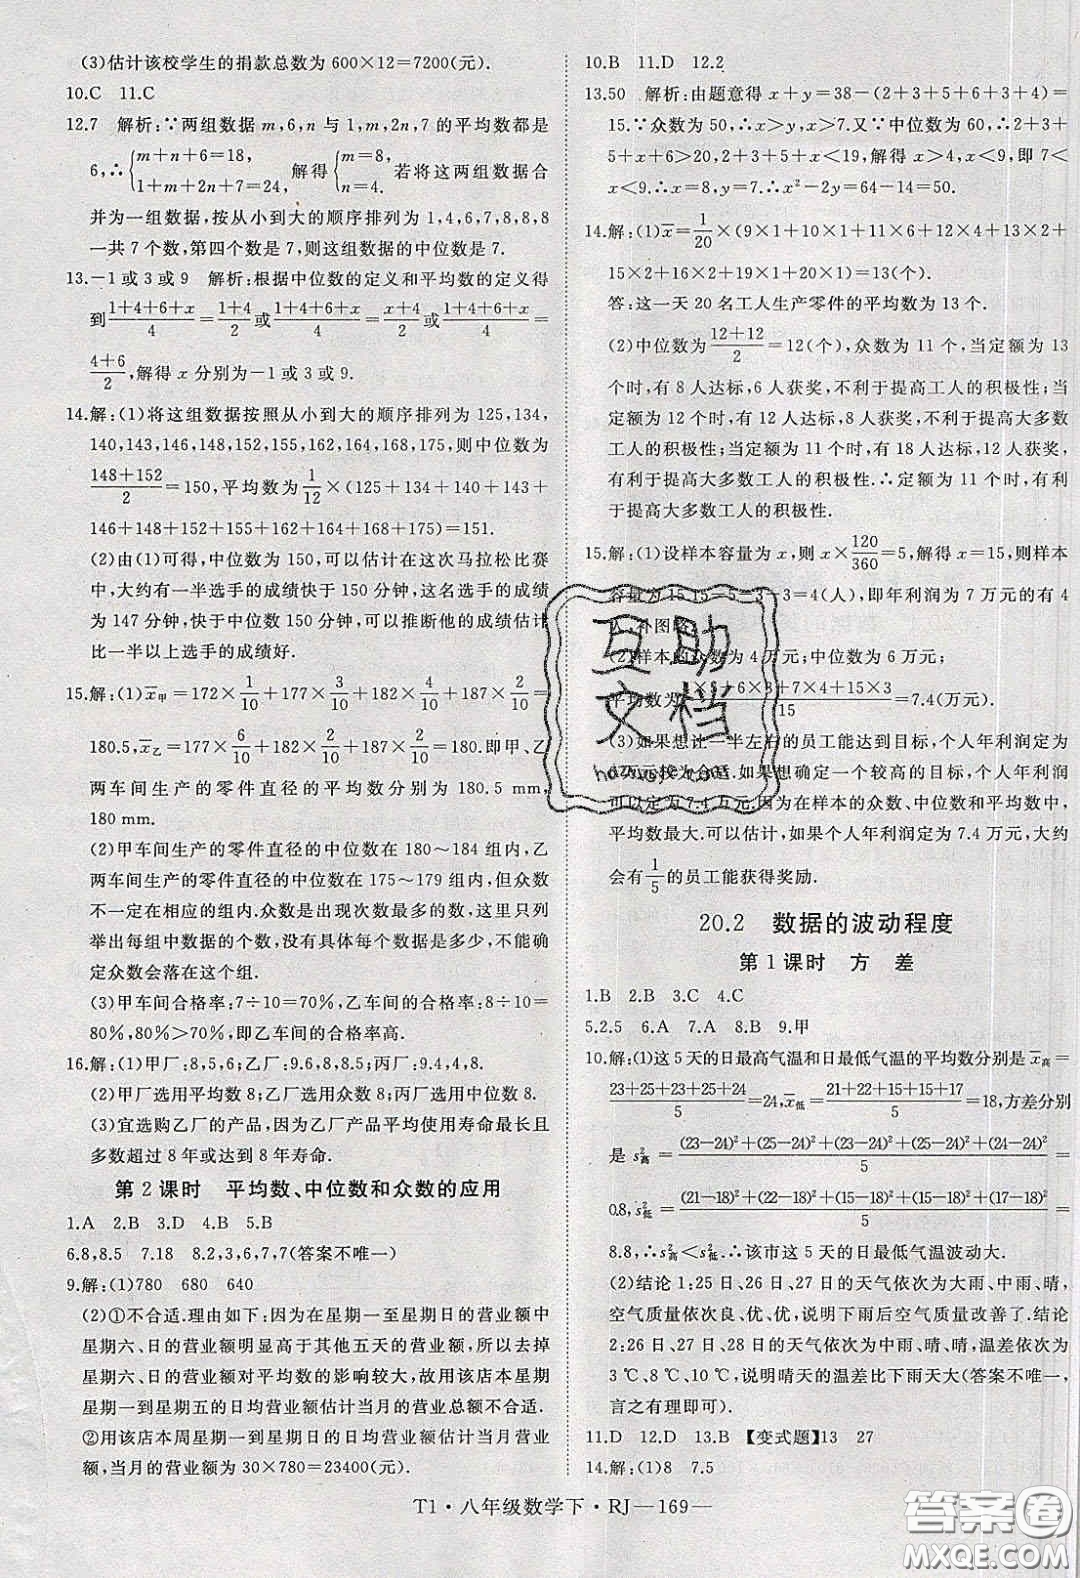 (3)估计该校学生的捐款总数为600×12=7200(元).
10.C 11.C
12.7 解析:∵两组数据 m,6,n 与 1,m,2n,7 的平均数都是
6,∴{m+n+6=18, 1+m+2n+7=24, 解得{m=8, n=4. 若将这两组数据合
并为一组数据,按从小到大的顺序排列为 1,4,6,7,8,8,8
一共 7 个数,第四个数是 7,则这组数据的中位数是 7.
13.−1 或 3 或 9 解析:根据中位数的定义和平均数的定义得
到(1+4+6+x)/4=(1+4)/2或(1+4+6+x)/4=(4+x)/2或(1+4+6+x)/4=
(4+6)/2,解得 x 分别为−1 或 3 或 9.
14.解:(1)将这组数据按照从小到大的顺序排列为 125,134,
140,143,146,148,152,155,162,164,168,175,则中位数为
(148+152)/2=150,平均数为 1/12×(125+134+140+143+
146+148+152+155+162+164+168+175)=151.
(2)由(1)可得,中位数为 150,可以估计在这次马拉松比赛
中,大约有一半选手的成绩快于 150 分钟,这名选手的成绩
为 147 分钟,快于中位数 150 分钟,可以推断他的成绩估计
比一半以上选手的成绩好.
15.解:(1)x̄甲=172×1/10+177×3/10+182×4/10+187×2/10=
180.5,x̄乙=177×6/10+182×2/10+187×2/10=180.即甲、乙
两车间生产的零件直径的平均数分别为 180.5 mm,
180 mm.
(2)甲车间生产的零件直径的中位数在 180～184 组内,乙
两车间生产的零件直径的中位数在 175～179 组内,但众数
不一定在相应的组内.众数是出现次数最多的数,这里只列
举出每组中数据的个数,没有具体每个数据是多少,不能确
定众数会落在这个组.
(3)甲车间合格率:7÷10=70%,乙车间的合格率:8÷10=
80%,80%>70%,即乙车间的合格率高.
16.解:(1)甲厂:8,5,6;乙厂:9.6,8,8.5;丙厂:9.4,4,8.
(2)甲厂选用平均数 8;乙厂选用众数 8;丙厂选用中位数 8.
(3)宜选购乙厂的产品,因为乙厂产品平均使用寿命最长且
多数超过 8 年或达到 8 年寿命.
第 2 课时 平均数、中位数和众数的应用
1.A 2.B 3.D 4.B 5.B
6.8,8.5 7.18 8.2,3,6,7,7(答案不唯一)
9.解:(1)780 680 640
(2)①不合适.理由如下:因为在星期一至星期日的营业额中
星期六、日的营业额明显高于其他五天的营业额,所以去掉
星期六、日的营业额对平均数的影响较大,故用该店本周星
期一到星期五的日均营业额估计当月的营业总额不合适.
②用该店本周星期一到星期日的日均营业额估计当月营业
额,当月的营业额为 30×780=23400(元).
10.B 11.D 12.2
13.50 解析:由题意得 x+y=38−(2+3+5+6+3+4)=
15.∵众数为 50,∴x>y,x>7.又∵中位数为 60,∴2+3+
5+x+6>y+3+4,解得 x>4,x<9,即 7<
x<9.∴x=8,y=7.∴x²−2y=64−14=50.
14.解:(1)x̄=1/20×(9×1+10×1+11×6+12×4+13×2+
15×2+16×2+19×1+20×1)=13(个).
答:这一天 20 名工人生产零件的平均数为 13 个.
(2)中位数为(12+12)/2=12(个),众数为 11 个,当定额为 13
个时,有 8 人达标,6 人获奖,不利于提高工人的积极性;当
定额为 12 个时,有 12 人达标,8 人获奖,不利于提高大多数
工人的积极性;当定额为 11 个时,有 18 人达标,12 人获奖,
有利于提高大多数工人的积极性.∴定额为 11 个时,有利
于提高大多数工人的积极性.
15.解:(1)设样本容量为 x,则 x×120/360=5,解得 x=15,所以样本
容量为 15.15−5−3−3=4(人),即年利润为 7 万元的有 4
人,补图略.
(2)样本的众数为 4 万元;中位数为 6 万元;
平均数为 ×3+7×4+15×3/15=7.4(万元).
(3)如果想让一半左右的员工能达到目标,个人年利润定为
万元较为合适.如果想确定一个较高的目标,个人年利润
可以定为 7.4 万元.因为在样本的众数、中位数和平均数中,
平均数最大.可以估计,如果个人年利润定为 7.4 万元,大约
会有1/5的员工能获得奖励.
20.2 数据的波动程度
第 1 课时 方 差
1.B 2.B 3.C 4.C
5.2.5 6.A 7.A 8.B 9.甲
10.解:(1)这 5 天的日最高气温和日最低气温的平均数分别是 x̄高=
(23+25+23+25+24)/5=24,x̄低=(21+22+15+15+17)/5=18,方差分别
是 s²高=[(23−24)²+(25−24)²+(23−24)²+(25−24)²+(24−24)²]/5=
0.8,s²低=[(21−18)²+(22−18)²+(15−18)²+(15−18)²+(17−18)²]/5=
8.8,∴s²高<s²低.∴该市这 5 天的日最低气温波动大.
(2)结论 1:25 日、26 日、27 日的天气依次为大雨、中雨、晴,
空气质量依次良、优、优,说明下雨后空气质量改善了.结论
2:26 日、27 日、28 日的天气依次为中雨、晴、晴,温差依次为
3 ℃,8 ℃,10 ℃,说明晴天的温差比下雨天大(答案不唯一,
言之有理即可).
11.D 12.D 13.B 【变式题】13 27
14.解:(1)8 7.5
T1·八年级数学下·RJ—169—
互助
文档
答案圈
MXQE.COM